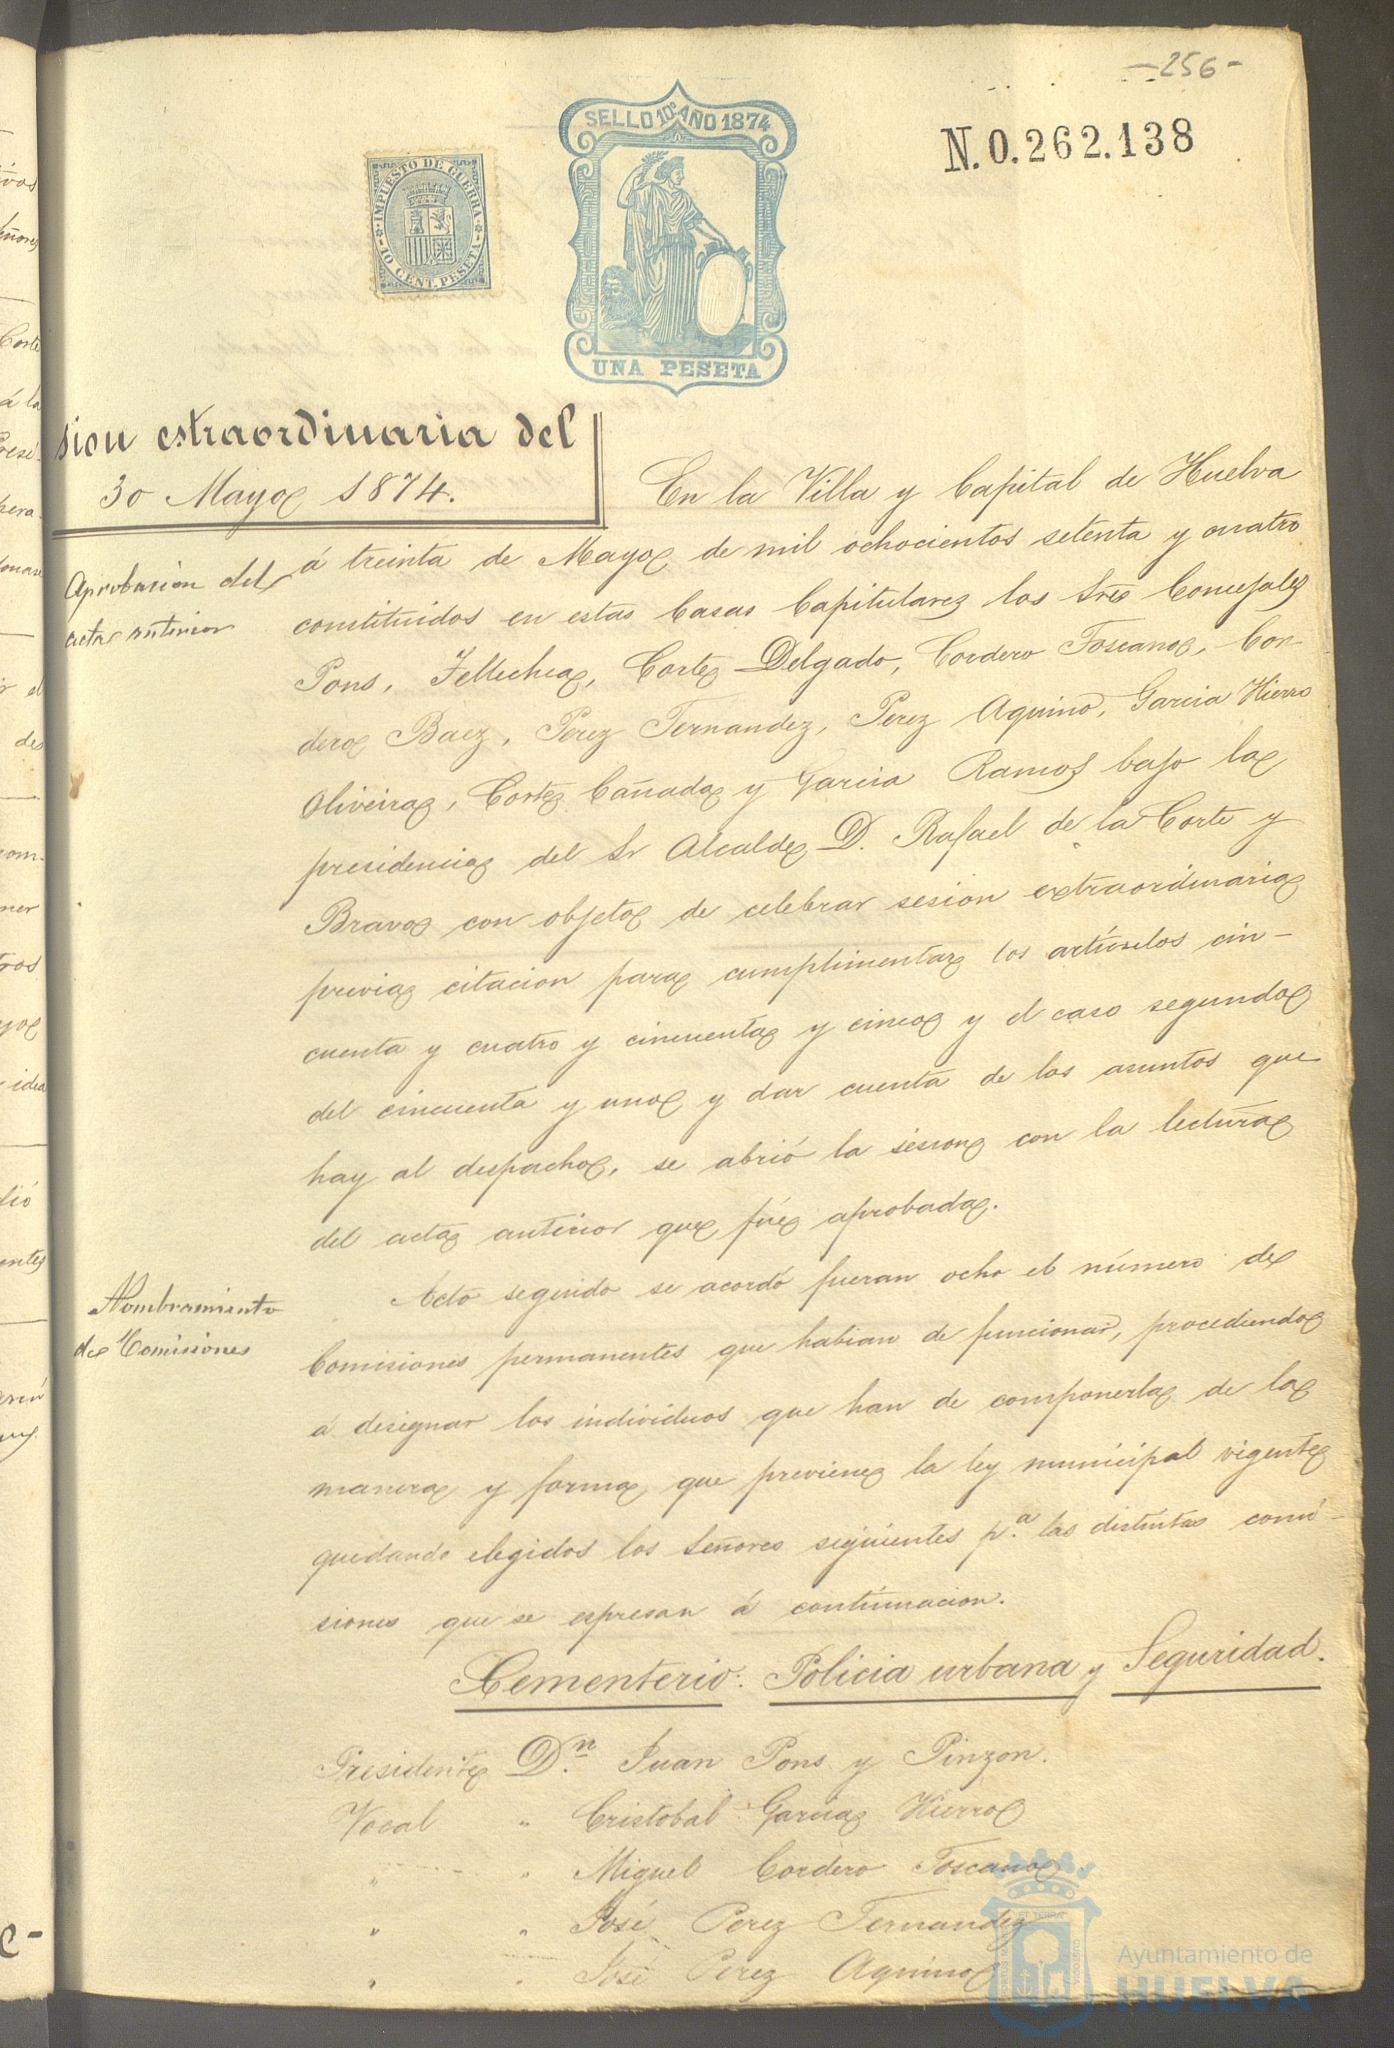 -256-
SELLO 10º AÑO 1874
N.0.262.138
IMPUESTO DE GUERRA
10 CENT. PESETA
UNA PESETA
sion estraordinaria del
30 Mayo 1874.
Aprobacion del
acta anterior
En la Villa y Capital de Huelva
á treinta de Mayo de mil ochocientos setenta y cuatro
constituidos en estas Casas Capitulares los Sres Concejales
Pons, Cortes Delgado, Cordero Toscano, Cor-
dero Baez, Perez Fernandez, Perez Aquino, Garcia Hierro
Oliveira, Cortes Cañada y Garcia Ramos bajo la
presidencia del Sr Alcalde D. Rafael de la Corte y
Bravo con objeto de celebrar sesion extraordinaria
previa citacion para cumplimentar los artículos cin-
cuenta y cuatro y cincuenta y cinco y el caso segundo
del cincuenta y uno y dar cuenta de los asuntos que
hay al despacho, se abrió la sesion con la lectura
del acta anterior que fué aprobada.
Nombramiento
de Comisiones
Acto seguido se acordó fueran ocho el número de
Comisiones permanentes que habian de funcionar, procediendo
á designar los individuos que han de componerla de la
manera y forma que previene la ley municipal vigente
quedando elegidos los Señores siguientes p.ª las distintas comi-
siones que se espresan á continuacion.
Cementerio. Policia urbana y Seguridad.
Presidente D.n Juan Pons y Pinzon.
Vocal " Cristobal Garcia Hierro
" " Miguel Cordero Toscano
" " José Perez Fernandez
" " José Perez Aquino
Ayuntamiento de
HUELVA